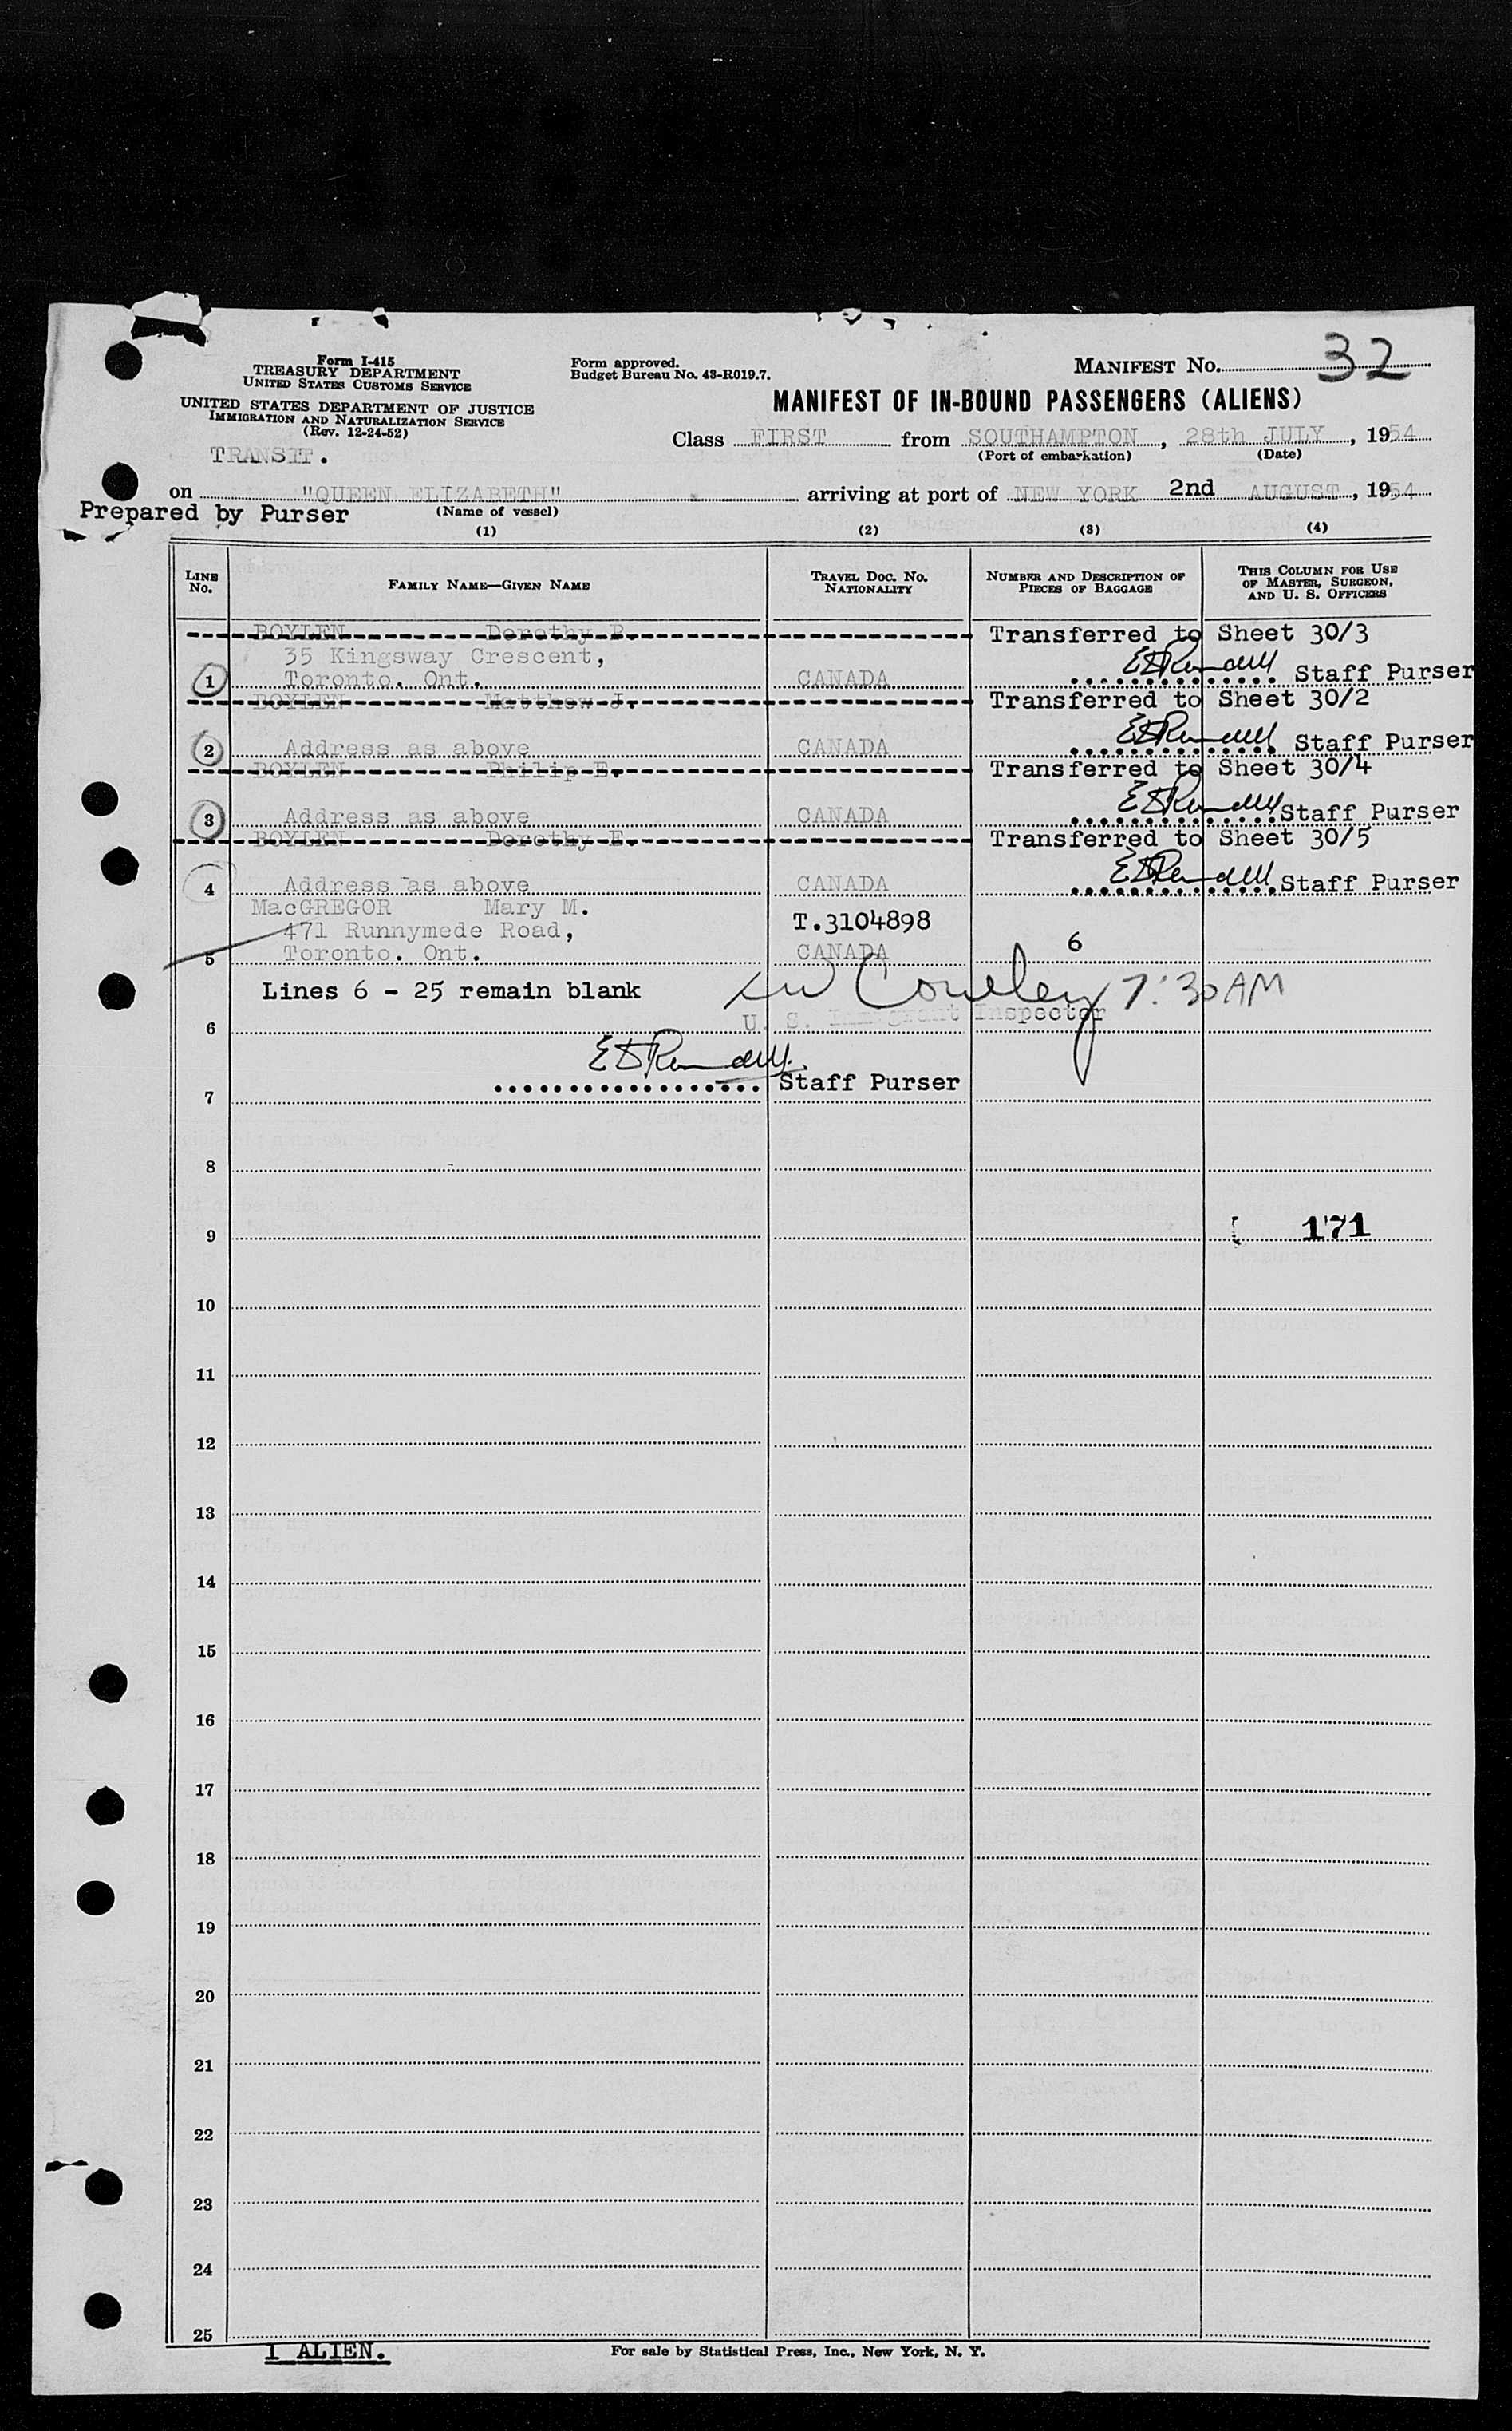 Form I-415
TREASURY DEPARTMENT
UNITED STATES CUSTOMS SERVICE
UNITED STATES DEPARTMENT OF JUSTICE
IMMIGRATION AND NATURALIZATION SERVICE
(Rev. 12-24-52)
TRANSIT.
Form approved.
Budget Bureau No. 43-R019.7.
MANIFEST No. 32
MANIFEST OF IN-BOUND PASSENGERS (ALIENS)
Class FIRST from SOUTHAMPTON, 28th JULY, 1954
(Port of embarkation) (Date)
on "QUEEN ELIZABETH" arriving at port of NEW YORK 2nd AUGUST, 1954
Prepared by Purser (Name of vessel)
(1) (2) (3) (4)
LINE No. FAMILY NAME—GIVEN NAME TRAVEL DOC. No. NATIONALITY NUMBER AND DESCRIPTION OF PIECES OF BAGGAGE THIS COLUMN FOR USE OF MASTER, SURGEON, AND U. S. OFFICERS
BOYLEN Dorothy P. Transferred to Sheet 30/3
35 Kingsway Crescent,
1 Toronto. Ont. CANADA Staff Purser
BOYLEN Matthew J. Transferred to Sheet 30/2
2 Address as above CANADA Staff Purser
BOYLEN Philip E. Transferred to Sheet 30/4
3 Address as above CANADA Staff Purser
BOYLEN Dorothy E. Transferred to Sheet 30/5
4 Address as above CANADA Staff Purser
MacGREGOR Mary M.
471 Runnymede Road, T.3104898
5 Toronto. Ont. CANADA 6
Lines 6 - 25 remain blank 7:30 AM
6 U. S. Immigrant Inspector
7 Staff Purser
8
9 171
10
11
12
13
14
15
16
17
18
19
20
21
22
23
24
25
1 ALIEN. For sale by Statistical Press, Inc., New York, N. Y.